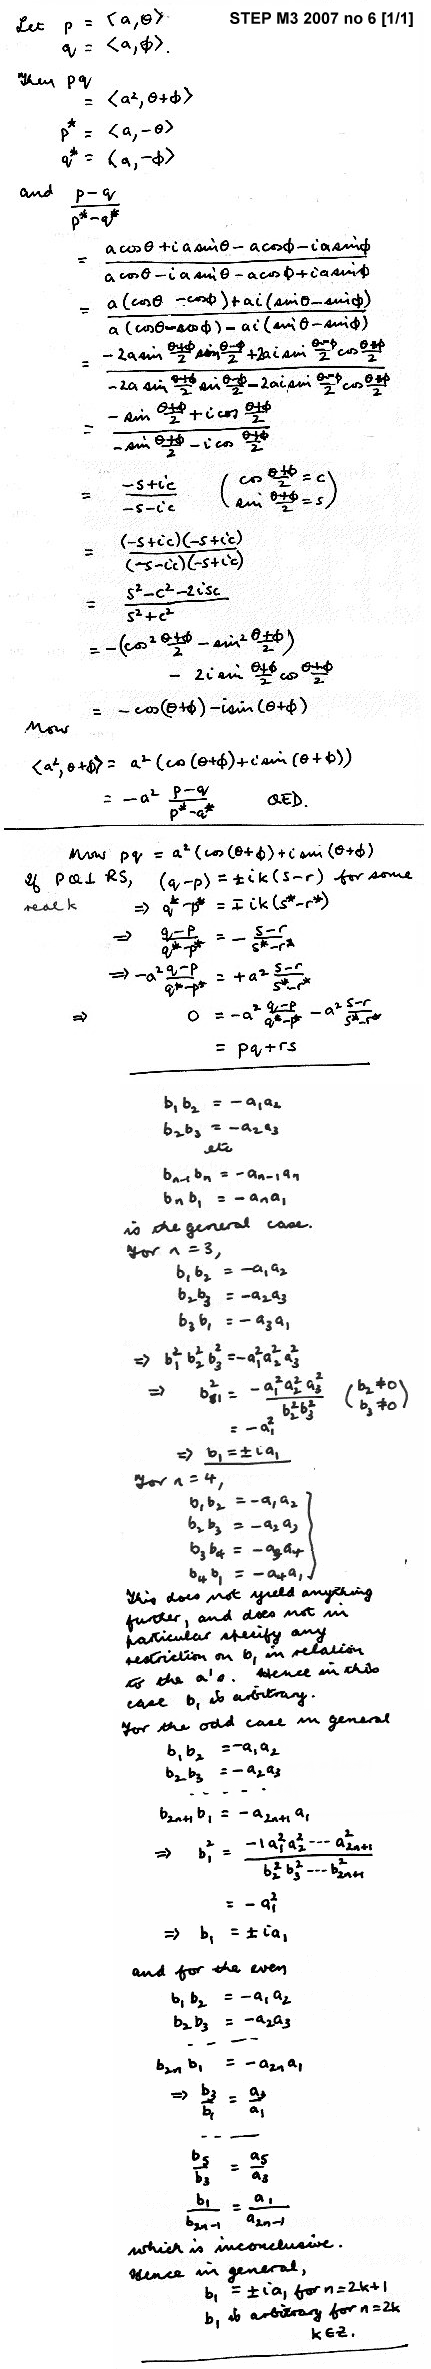 STEP M3 2007 no 6 [1/1]
Let p = <a,θ>
q = <a,φ>.
Then pq
= <a², θ+φ>
p* = <a,-θ>
q* = <a,-φ>
and (p-q)/(p*-q*)
= (a cosθ + i a sinθ - a cosφ - i a sinφ)/(a cosθ - i a sinθ - a cosφ + i a sinφ)
= (a(cosθ - cosφ) + ai(sinθ - sinφ))/(a(cosθ - cosφ) - ai(sinθ - sinφ))
= (-2a sin (θ+φ)/2 sin (θ-φ)/2 + 2ai sin (θ-φ)/2 cos (θ+φ)/2)/(-2a sin (θ+φ)/2 sin (θ-φ)/2 - 2ai sin (θ-φ)/2 cos (θ+φ)/2)
= (-sin (θ+φ)/2 + i cos (θ+φ)/2)/(-sin (θ+φ)/2 - i cos (θ+φ)/2)
= (-s+ic)/(-s-ic) (cos (θ+φ)/2 = c
sin (θ+φ)/2 = s)
= (-s+ic)(-s+ic)/(-s-ic)(-s+ic)
= (s²-c²-2isc)/(s²+c²)
= -(cos² (θ+φ)/2 - sin² (θ+φ)/2)
- 2i sin (θ+φ)/2 cos (θ+φ)/2
= -cos(θ+φ) - i sin(θ+φ)
Now
<a², θ+φ> = a²(cos(θ+φ) + i sin(θ+φ))
= -a² (p-q)/(p*-q*) QED.
Now pq = a²(cos(θ+φ) + i sin(θ+φ)
If PQ⊥RS, (q-p) = ±ik(s-r) for some
real k ⇒ q*-p* = ∓ik(s*-r*)
⇒ (q-p)/(q*-p*) = -(s-r)/(s*-r*)
⇒ -a² (q-p)/(q*-p*) = +a² (s-r)/(s*-r*)
⇒ 0 = -a² (q-p)/(q*-p*) - a² (s-r)/(s*-r*)
= pq+rs
b₁b₂ = -a₁a₂
b₂b₃ = -a₂a₃
etc
bₙ₋₁bₙ = -aₙ₋₁aₙ
bₙb₁ = -aₙa₁
is the general case.
For n = 3,
b₁b₂ = -a₁a₂
b₂b₃ = -a₂a₃
b₃b₁ = -a₃a₁
⇒ b₁²b₂²b₃² = -a₁²a₂²a₃²
⇒ b₁² = -a₁²a₂²a₃²/b₂²b₃² (b₂≠0
b₃≠0)
= -a₁²
⇒ b₁ = ±ia₁
For n = 4,
b₁b₂ = -a₁a₂
b₂b₃ = -a₂a₃
b₃b₄ = -a₃a₄
b₄b₁ = -a₄a₁
This does not yield anything
further, and does not in
particular specify any
restriction on b₁ in relation
to the a's. Hence in this
case b₁ is arbitrary.
For the odd case in general
b₁b₂ = -a₁a₂
b₂b₃ = -a₂a₃
- - - - -
b₂ₙ₊₁b₁ = -a₂ₙ₊₁a₁
⇒ b₁² = -1a₁²a₂²---a²₂ₙ₊₁/b₂²b₃²---b²₂ₙ₊₁
= -a₁²
⇒ b₁ = ±ia₁
and for the even
b₁b₂ = -a₁a₂
b₂b₃ = -a₂a₃
- - - -
b₂ₙb₁ = -a₂ₙa₁
⇒ b₃/b₁ = a₃/a₁
- - - -
b₅/b₃ = a₅/a₃
b₁/b₂ₙ₋₁ = a₁/a₂ₙ₋₁
which is inconclusive.
Hence in general,
b₁ = ±ia₁ for n=2k+1
b₁ is arbitrary for n=2k
k∈Z.